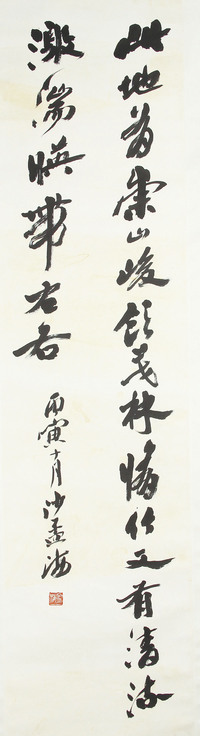 此地有崇山峻領茂林脩竹又有清流
激湍暎帶左右
丙寅十月沙孟海